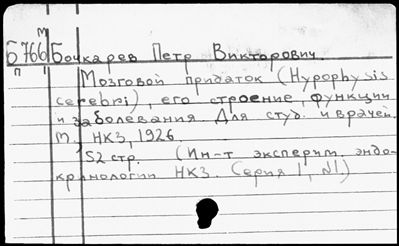 М
Б766 Бочкарев Петр Викторович.
П I
Мозговой придаток (Hypophysis
cerebri), его строение, функции
и заболевания. Для студ. и врачей.
М., НКЗ, 1926.
52 стр. (Ин-т эксперим. эндо-
кринологии НКЗ. Серия I, №1)